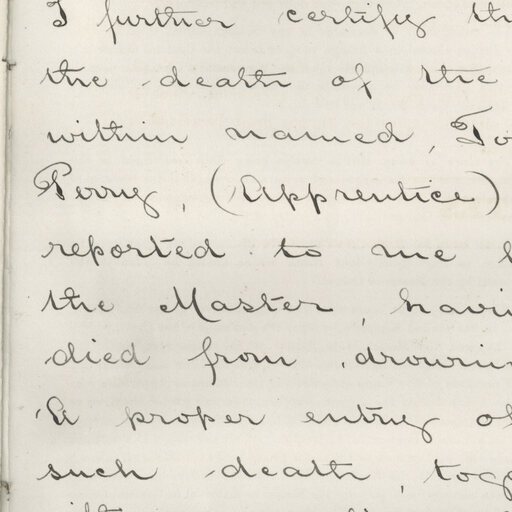 I further certify th
the death of the
within named, To
Perry, (Apprentice)
reported to me b
the Master, havi
died from drowni
A proper entry of
such death, tog